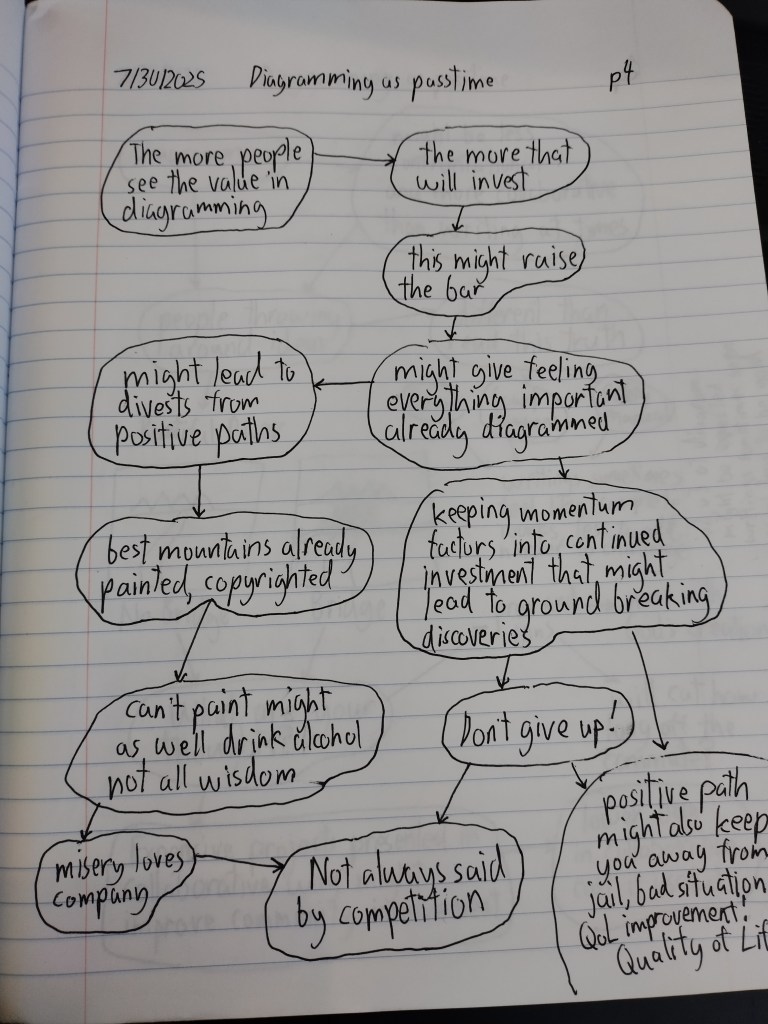 7/30/2025 Diagramming as passtime p4
The more people
see the value in
diagramming
the more that
will invest
this might raise
the bar
might give feeling
everything important
already diagrammed
might lead to
divests from
positive paths
best mountains already
painted, copyrighted
keeping momentum
factors into continued
investment that might
lead to ground breaking
discoveries
can't paint might
as well drink alcohol
not all wisdom
Don't give up!
misery loves
company
Not always said
by competition
positive path
might also keep
you away from
jail, bad situation
QoL improvement!
Quality of Lif